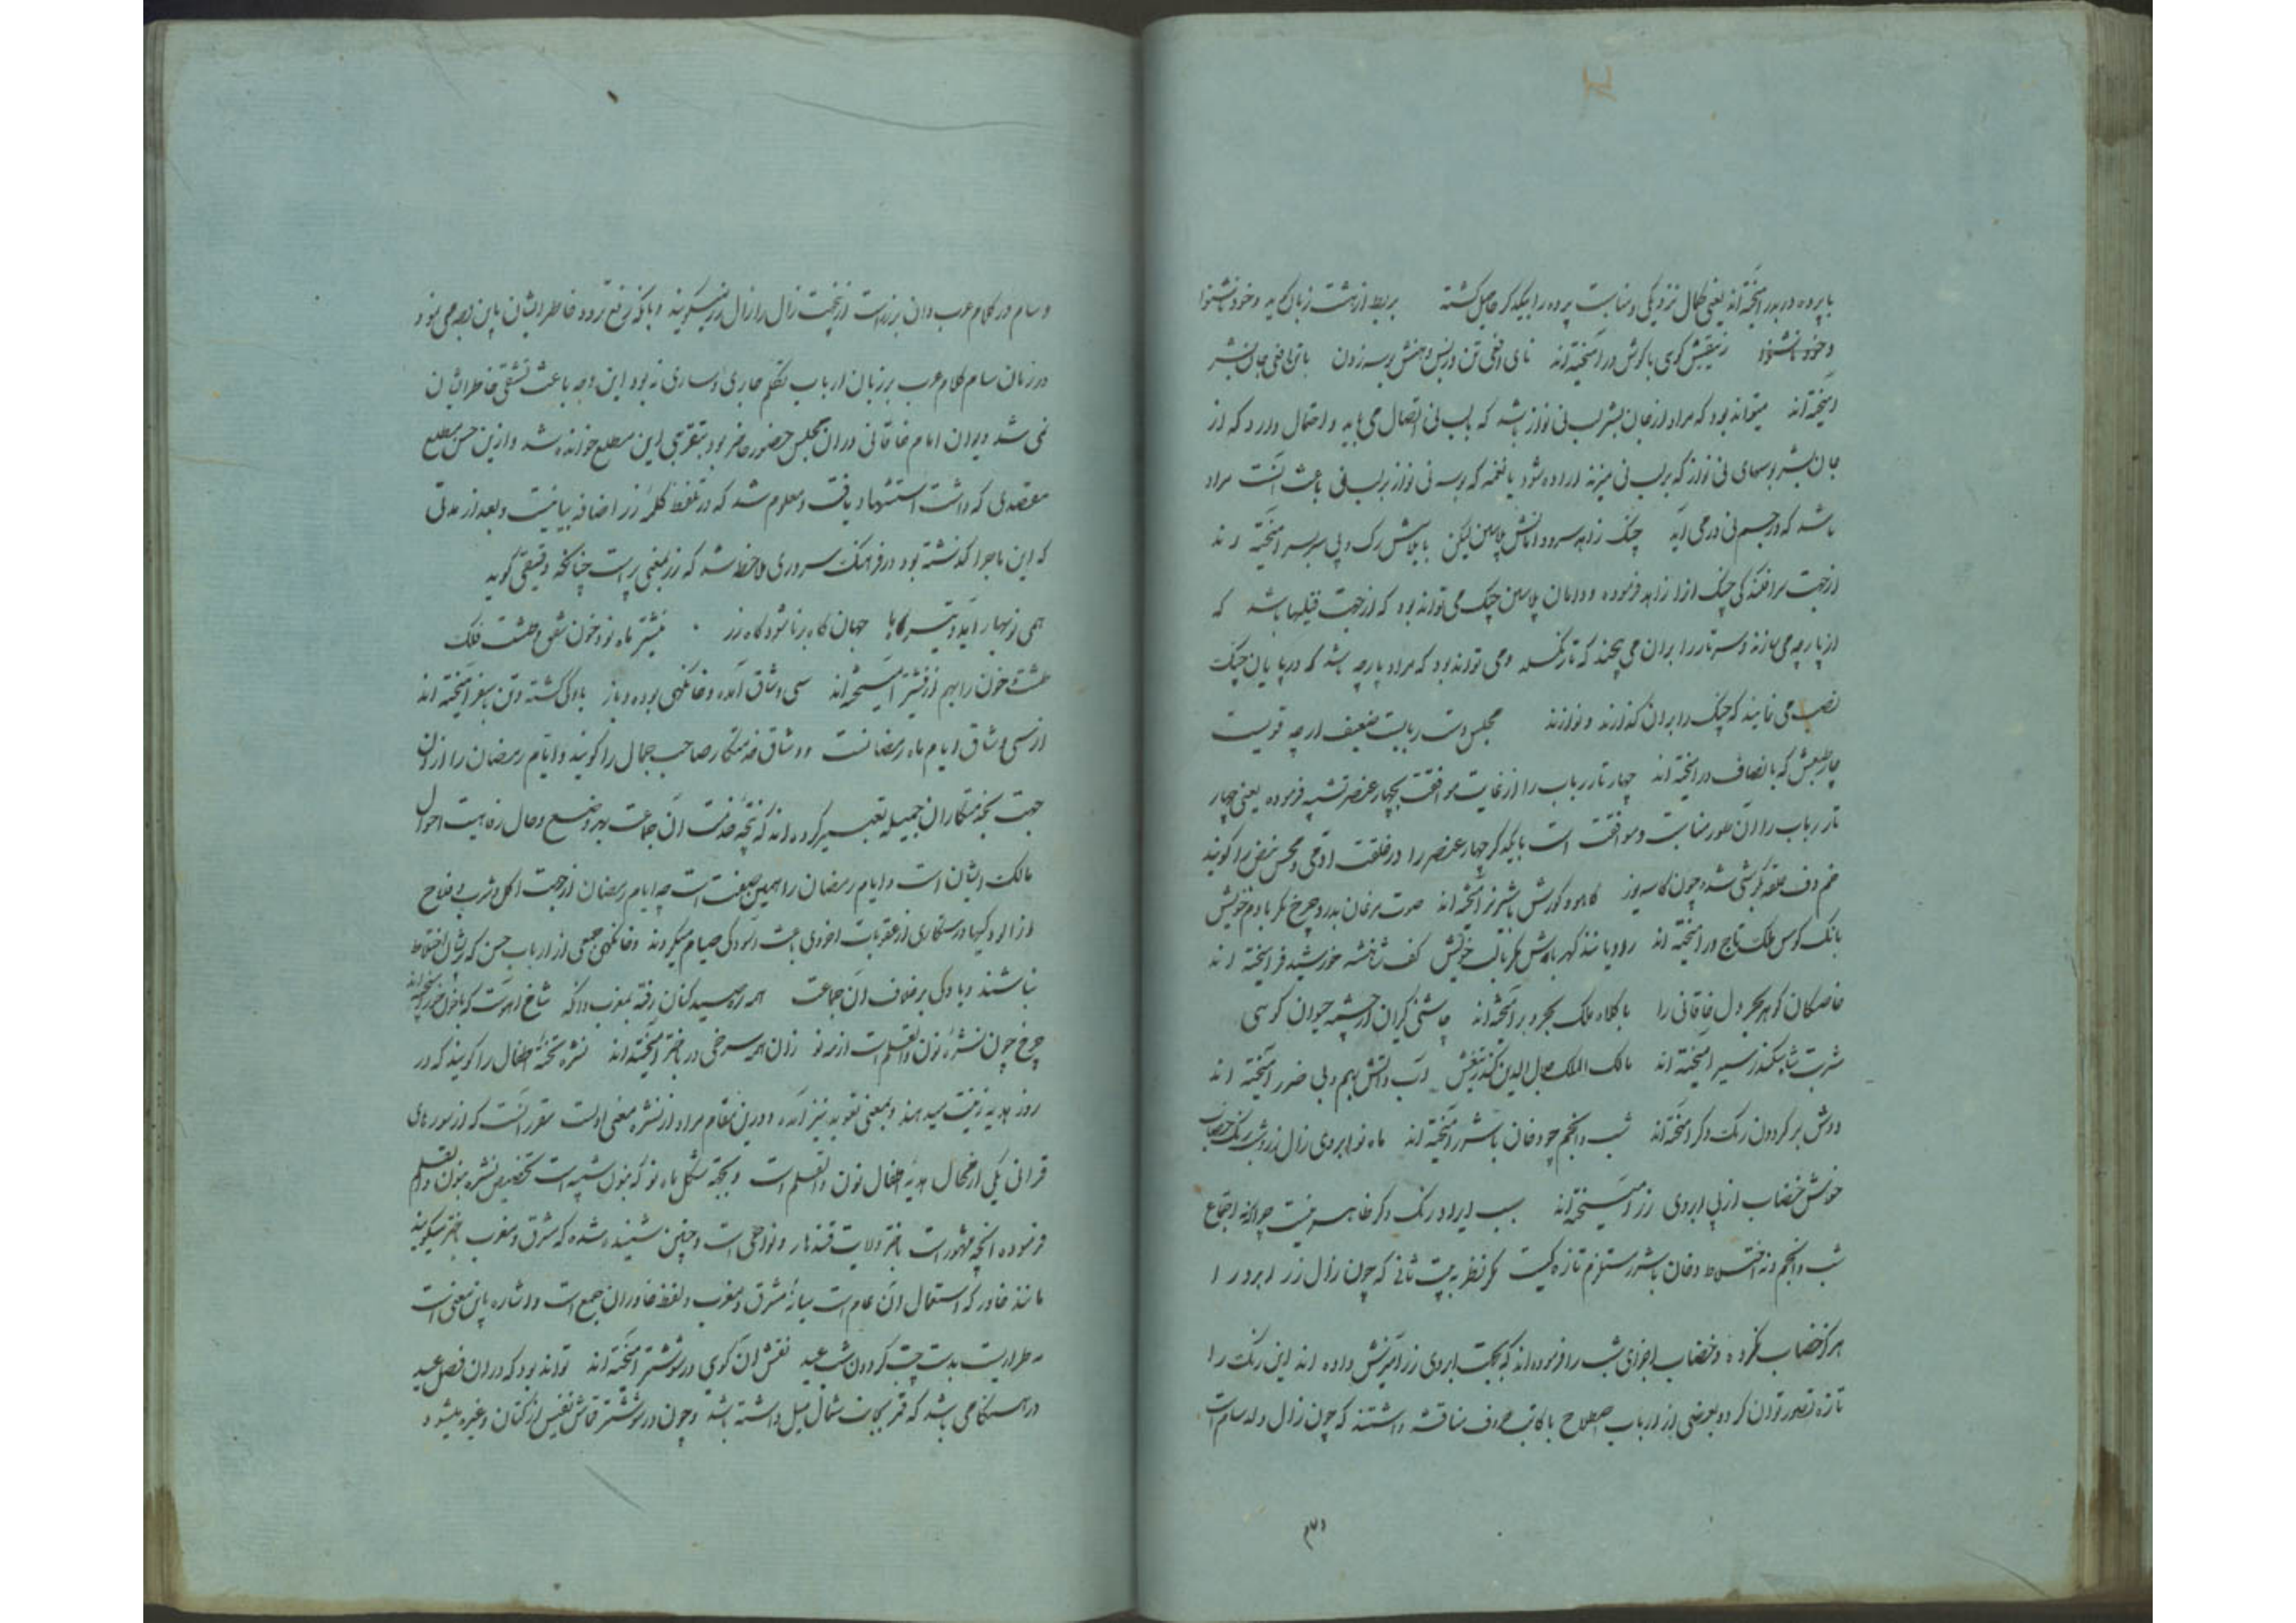 با پرده در بدر آمیخته‌اند یعنی کمال نزدیکی و مناسبت پرده را بیکدیگر حاصل گشته بربط از هشت زبان گوید و خود نشنوا
و خود ناشنوا زیبقش گوی با گوش در آمیخته‌اند نای افعی تن و بس دهنش بوسه زدن با تن افعی جان بشر
آمیخته‌اند میتواند بود که مراد از جان بشر لب نی نواز باشد که بلب نی اتصال می یابد و احتمال دارد که از
جان بشر بوسهای نی نواز که بر لب نی میزند اراده شود یا نغمه که بوسه نی نواز بر لب نی باعث آنست مراد
باشد که در جسم نی در می آید چنگ زاهد سر و دامانش پلاسین لیکن با پلاسش رگ و پی سربسر آمیخته اند
از جهت سرافکندگی چنگ او را زاهد فرموده و دامان پلاسین چنگ می تواند بود که از جهت فتیلها باشد که
از پارچه می سازند و سر تار را بران می پیچند که تار نگسلد و می تواند بود که مراد پارچه باشد که در پایان چنگ
نصب می نمایند که چنگ را بران گذارند و نوازند مجلس دست ربابیست ضعیف ارچه قویست
چار طبعش که بانصاف در آمیخته اند چهار تار رباب را از غایت موافقت بچهار عنصر تشبیه فرموده یعنی چهار
تار رباب را آن طور مناسبت و موافقت است بایکدیگر چهار عنصر را در خلقت آدمی و مجس نبض را گویند
خم دف حلقه بگوشی شده چون کاسه یوز کاهو و گورش با شیر نر آمیخته اند صوت مرغان بدرد چرخ مگر با دم خویش
بانگ کوس ملک تاج ور آمیخته اند راویانند گهر پاش مگر بالب خویش کف شاهنشه خورشید فر آمیخته اند
خاصگان گوهر بحر دل خاقانی را با کلاه ملک بحر و بر آمیخته‌اند چاشنی گیران از چشمه حیوان گویی
شربت شاه سکندر سیر آمیخته اند مالک الملک جلال الدین کاندر تیغش آب و آتش بهم و بی ضرر آمیخته اند
دوش بر گردون رنگ دگر آمیخته‌اند شب و انجم چو دخان با شرر آمیخته اند ماه نو ابروی زال زر و شب رنگ خضاب
خوش خضاب از پی ابروی زر آمیخته‌اند سبب ایراد رنگ دگر ظاهر نیست چرا که اجتماع
شب و انجم و نه اختلاط دخان با شرر مستلزم تازه گیست مگر نظر به بیت ثانی که چون زال زر ابرو را
هرگز خضاب نکرده و خضاب اجزای شب را فرموده‌اند که بجهت ابروی زر آمیزش داده اند این رنگ را
تازه تصور توان کرد و بعضی از ارباب اصطلاح با کاتب حروف مناقشه داشتند که چون زال ولد سام است
و سام در کلام عرب دان بر زر است ازینجهت زال را زال زر نیز میگویند و با آنکه رفع تردد خاطر ایشان باین وجه می نمود
در زمان سام کلام عرب بر زبان ارباب تکلم جاری و ساری نه بود این وجه باعث تشفی خاطر ایشان
نمی شد دیوان امام خاقانی دران مجلس حضور حاضر بود بتقریبی این مطلع خوانده شد و ازین حسن مطلع
مقصدی که داشت استشهاد یافت و معلوم شد که در تلفظ کلمه زر اضافه بیانیست و بعد از مدتی
که این ماجرا گذشته بود در فرهنگ سروری ملاحظه شد که زر بمعنی پیر است چنانکه دقیقی گوید
همی نوبهار آید و تیرگاه جهان گاه برنا شود گاه زر نیشتر ماه نو و خون شفق و طشت فلک
طشت و خون را بهم از نیشتر آمیخته اند سی وشاق آمده و خانگهی بوده و باز بادگی گشته و تن بسفر آمیخته اند
از سی وشاق ایام ماه رمضانست و وشاق خدمتگار صاحب جمال را گویند و ایام رمضان را ازان
جهت بخدمتگاران جمیله تعبیر کرده‌اند که نتیجه خدمت آن جماعت بهر وضع و حال رفاهیت احوال
مالک ایشان است و ایام رمضان را همین صفت است چه ایام رمضان از جهت اکل و شرب و فلاح
از آلودگیها و رستگاری از عقوبات اخروی باعث آسودگی صیام میگردند و خانگهی جمعی از ارباب حسن که بشان اختلاط
نباشند و بادگی برخلاف آن جماعت همه ره صید کنان رفته بمغرب و آنکه شاخ آهوست که با خون جگر آمیخته اند
چرخ چون نشره نون والقلم است از مه نو زان همه سرخی در باختر آمیخته‌اند نشره تخته اطفال را گویند که در
روز هدیه زینت میدهند و بمعنی تعویذ نیز آمده و درین مقام مراد از نشره معنی اولست مقرر آنست که از سورهای
قرآنی یکی از محال هدیه اطفال نون والقلم است و بجهة شکل ماه نو که بنون شبیه است تخصیص نشره بنون والقلم
فرموده آنچه مشهور است باختر ولایت قندهار و نواحی است و چنین شنیده شده که مشرق و مغرب باختر میگویند
مانند خاور که استعمال آن عام است میانه مشرق و مغرب و لفظ خاوران جمع است و اشاره باین معنی است
مه طرازیست بدست چپ گردون شب عید نقش آن گویی در شوشتر آمیخته اند تواند بود که دران فصل عید
در هنگامی باشد که قمر بجانب شمال میل داشته باشد و چون در شوشتر قماش نفیس از کتان و غیره میشود